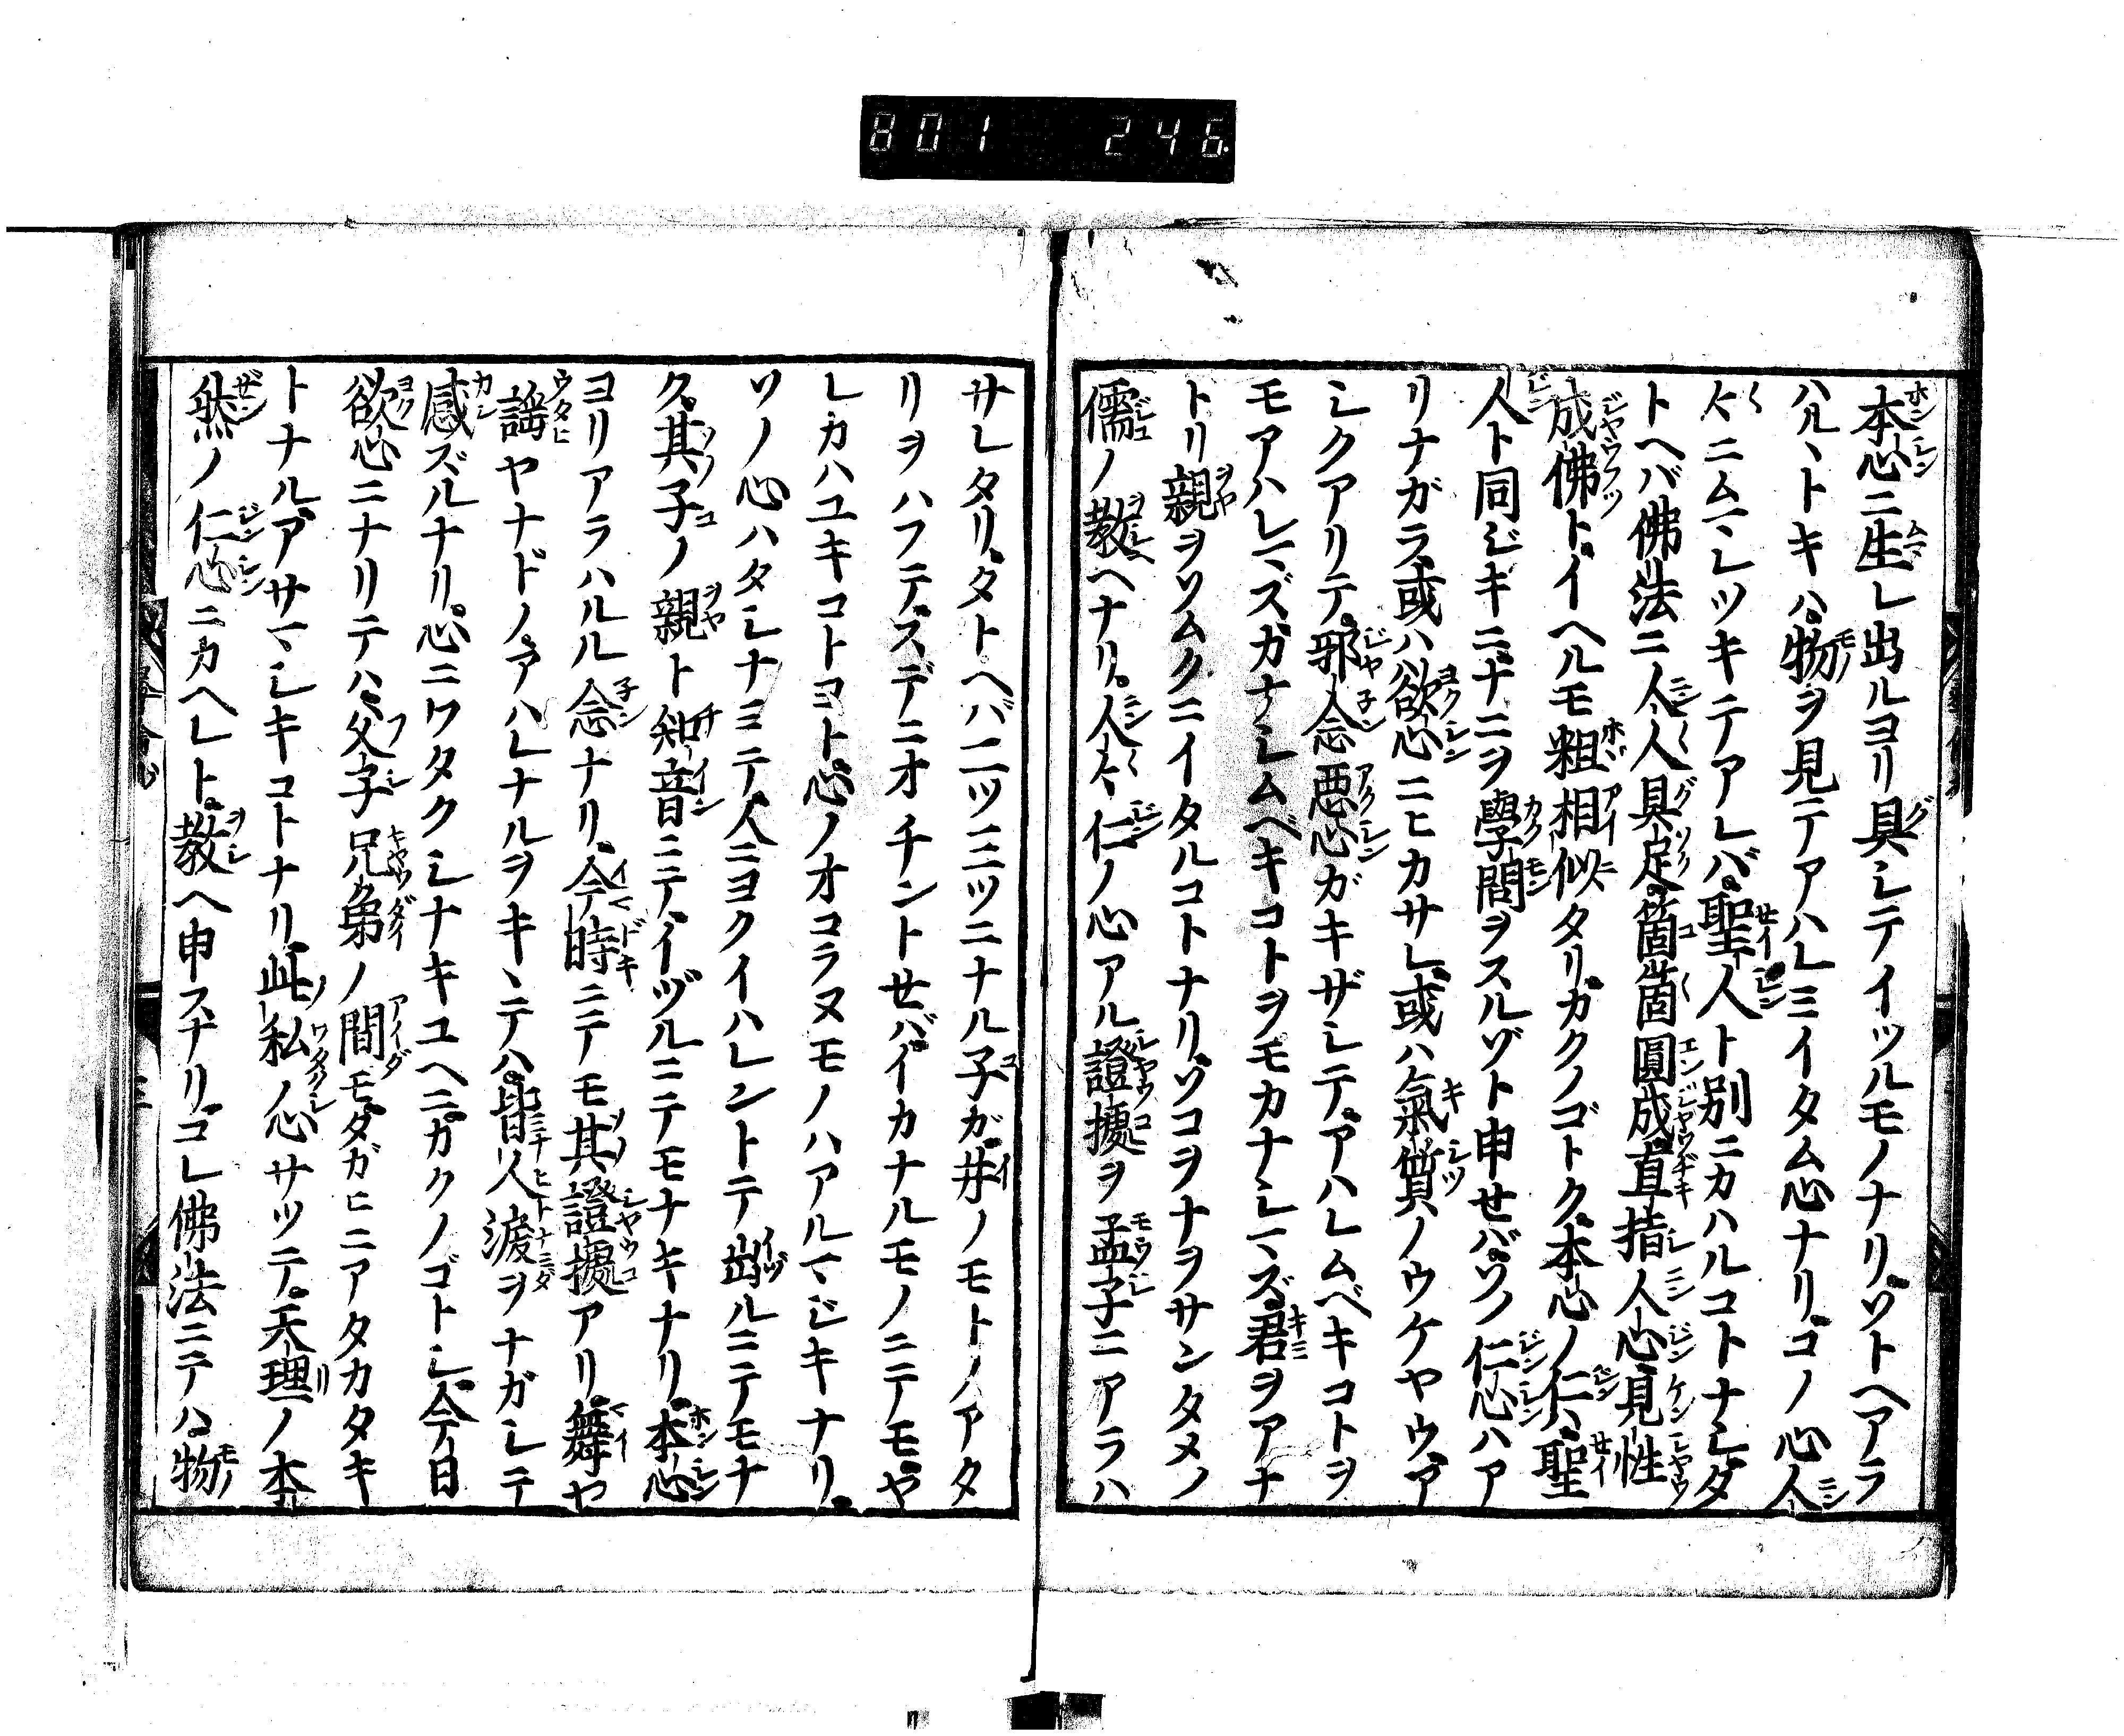 801 246
本心ニ生レ出ルヨリ具シテイツルモノナリ。ソトヘアラ
ハルヽトキハ。物ヲ見テアハレミイタム心ナリ。コノ心人
々ニムマレツキテアレバ。聖人ト別ニカハルコトナシ。タ
トヘバ佛法ニ人人具足。箇箇圓成。直指人心。見性
成佛ト。イヘルモ粗相似タリ。カクノゴトク。本心ノ仁ハ。聖
人ト同ジキニ。ナニヲ學問ヲスルゾト申せバ。ソノ仁心ハア
リナガラ。或ハ欲心ニヒカサレ。或ハ氣質ノウケヤウ。ア
シクアリテ。邪念惡心ガキザシテ。アハレムベキコトヲ
モアハレマズ。カナシムベキコトヲモカナシマズ。君ヲアナ
トリ親ヲソムクニイタルコトナリ。ソコヲナヲサンタメノ
儒ノ教ヘナリ。人々仁ノ心アル證據ヲ孟子ニアラハ
サレタリ。タトヘバ二ツ三ツニナル子ガ。井ノモトノアタ
リヲハフテ。スデニオチントせバ。イカナルモノニテモ。ヤ
レカハユキコトヨト。心ノオコラヌモノハアルマジキナリ。
ソノ心ハタレナミテ。人ニヨクイハレントテ出ルニテモナ
ク。其子ノ親ト知音ニテ。イヅルニテモナキナリ。本心
ヨリアラハルル念ナリ。今時ニテモ其證據アリ。舞ヤ
謡ヤナドノ。アハレナルヲキヽテハ。皆人涙ヲナガシテ
感ズルナリ。心ニワタクシナキユヘニ。カクノゴトシ。今日
欲心ニナリテハ。父子兄弟ノ間モ。タガヒニアタカタキ
トナル。アサマシキコトナリ。此私ノ心サツテ。天理ノ本
然ノ仁心ニカヘレト。教ヘ申スナリ。コレ佛法ニテハ。物